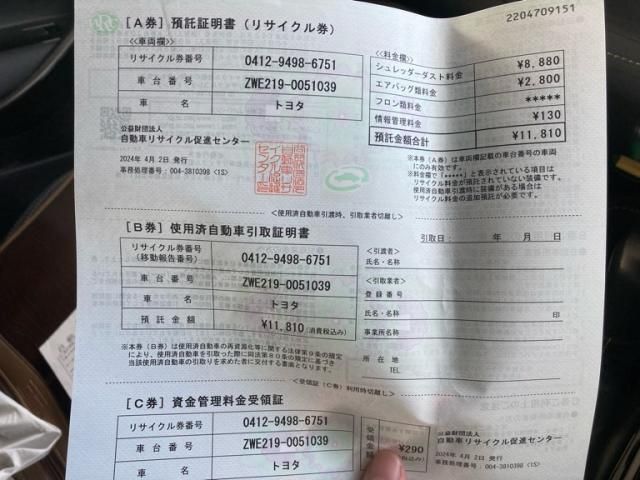 2204709151
[A券] 預託証明書 (リサイクル券)
<車両欄>
リサイクル券番号 0412-9498-6751
車台番号 ZWE219-0051039
車名 トヨタ
<料金欄>
シュレッダーダスト料金 ¥8,880
エアバッグ類料金 ¥2,800
フロン類料金 *****
情報管理料金 ¥130
預託金額合計 ¥11,810
公益財団法人
自動車リサイクル促進センター
2024年 4月 2日 発行
事務処理番号:004-3810398 <1S>
※本券(A券)は車両欄記載の車台番号の車両
にのみ有効です。
※料金欄で「*****」と表示されている項目は
リサイクル料金が預託されていない装備です。
使用済自動車引渡時に装備がある場合は
リサイクル料金の追加預託が必要です。
<使用済自動車引渡時、引取業者切離し>
[B券] 使用済自動車引取証明書
引取日: 年 月 日
リサイクル券番号
(移動報告番号) 0412-9498-6751
車台番号 ZWE219-0051039
車名 トヨタ
預託金額 ¥11,810 (消費税込み)
<引渡者>
氏名・名称
<引取業者>
登録番号
氏名・名称 印
事業所名称
所在地
TEL
※本券(B券)は使用済自動車の再資源化等に関する法律第9条の規定
により、使用済自動車を引取った際に同法第80条の規定に基づき
当該使用済自動車の引取りを求めた者に交付する書面となります。
<受領証(C券)利用時切離し>
[C券] 資金管理料金受領証
リサイクル券番号 0412-9498-6751
車台番号 ZWE219-0051039
車名 トヨタ
受領金額 ¥290
公益財団法人
自動車リサイクル促進センター
2024年 4月 2日 発行
事務処理番号:004-3810398 <1S>